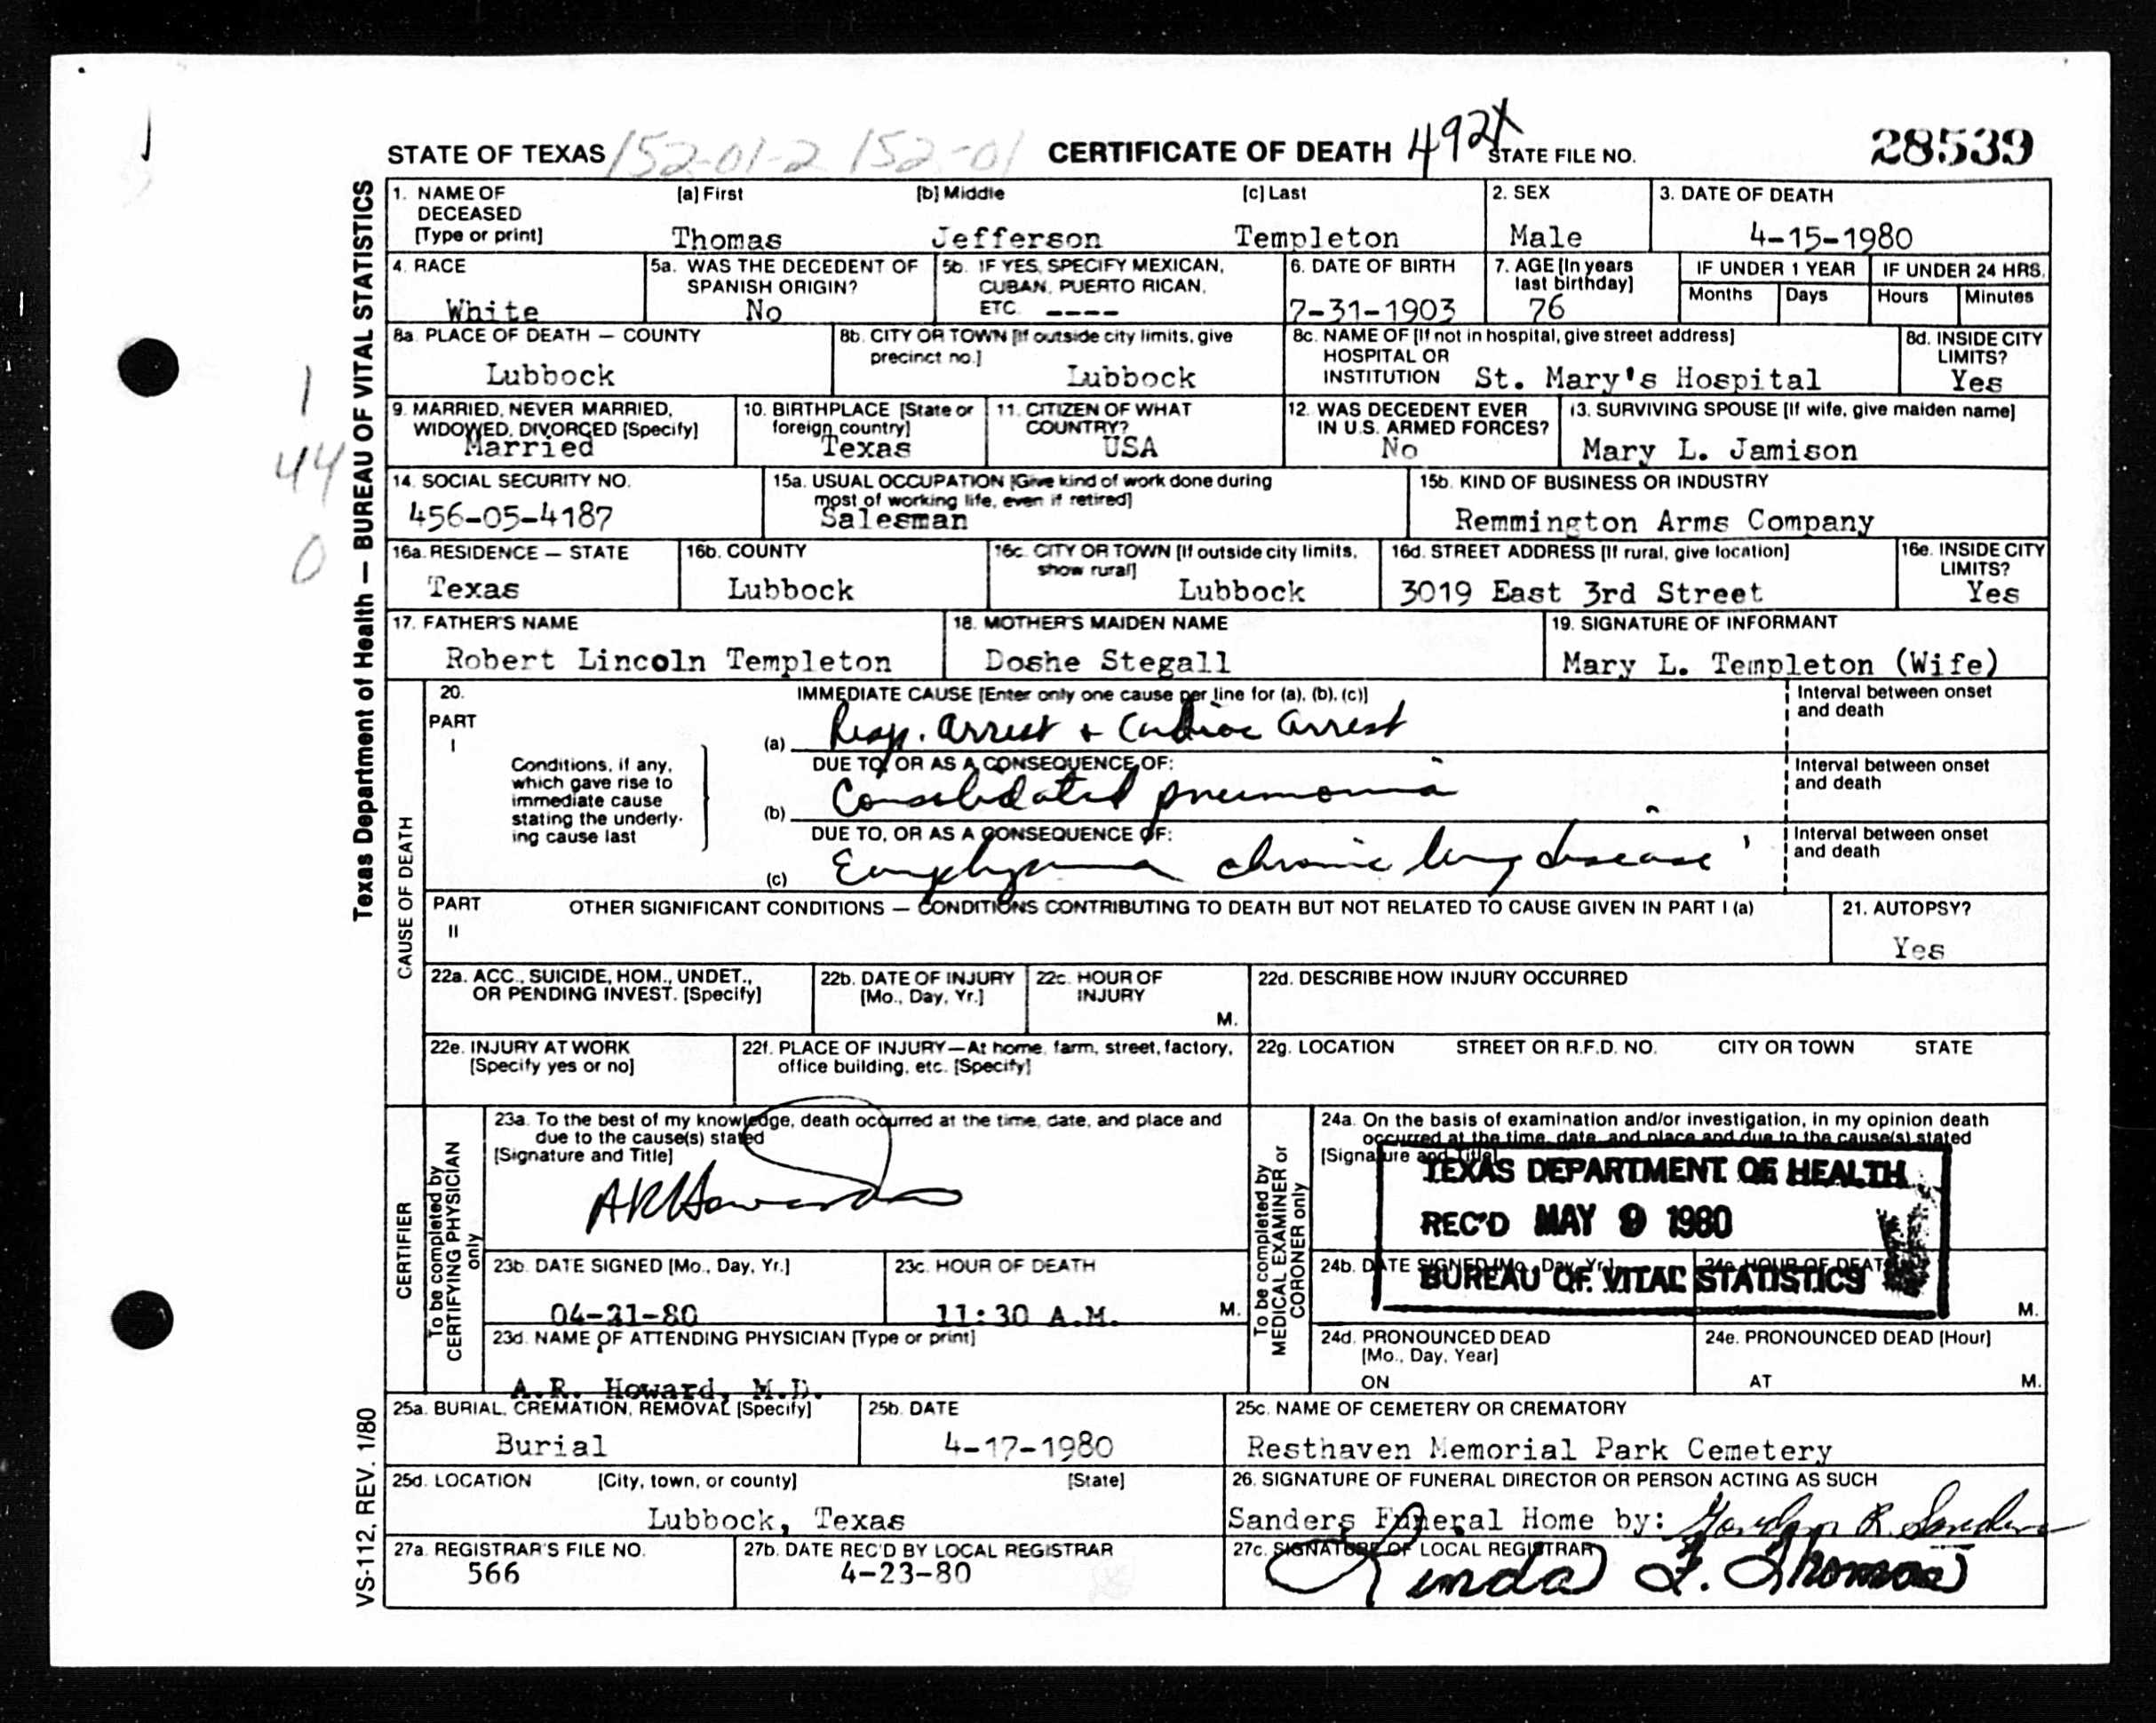 STATE OF TEXAS 152-01-2 152-01 CERTIFICATE OF DEATH 492X STATE FILE NO. 28539
Texas Department of Health — BUREAU OF VITAL STATISTICS
1. NAME OF DECEASED [Type or print] [a] First [b] Middle [c] Last 2. SEX 3. DATE OF DEATH
Thomas Jefferson Templeton Male 4-15-1980
4. RACE 5a. WAS THE DECEDENT OF SPANISH ORIGIN? 5b. IF YES, SPECIFY MEXICAN, CUBAN, PUERTO RICAN, ETC. 6. DATE OF BIRTH 7. AGE [In years last birthday] IF UNDER 1 YEAR IF UNDER 24 HRS.
Months Days Hours Minutes
White No ---- 7-31-1903 76
8a. PLACE OF DEATH — COUNTY 8b. CITY OR TOWN [If outside city limits, give precinct no.] 8c. NAME OF [If not in hospital, give street address] HOSPITAL OR INSTITUTION 8d. INSIDE CITY LIMITS?
Lubbock Lubbock St. Mary's Hospital Yes
1
9. MARRIED, NEVER MARRIED, WIDOWED, DIVORCED [Specify] 10. BIRTHPLACE [State or foreign country] 11. CITIZEN OF WHAT COUNTRY? 12. WAS DECEDENT EVER IN U.S. ARMED FORCES? 13. SURVIVING SPOUSE [If wife, give maiden name]
Married Texas USA No Mary L. Jamison
44
14. SOCIAL SECURITY NO. 15a. USUAL OCCUPATION [Give kind of work done during most of working life, even if retired] 15b. KIND OF BUSINESS OR INDUSTRY
456-05-4187 Salesman Remmington Arms Company
0
16a. RESIDENCE — STATE 16b. COUNTY 16c. CITY OR TOWN [If outside city limits, show rural] 16d. STREET ADDRESS [If rural, give location] 16e. INSIDE CITY LIMITS?
Texas Lubbock Lubbock 3019 East 3rd Street Yes
17. FATHER'S NAME 18. MOTHER'S MAIDEN NAME 19. SIGNATURE OF INFORMANT
Robert Lincoln Templeton Doshe Stegall Mary L. Templeton (Wife)
CAUSE OF DEATH
20. IMMEDIATE CAUSE [Enter only one cause per line for (a), (b), (c)] Interval between onset and death
PART I
(a) Resp. arrest + Cardiac arrest
Conditions, if any, which gave rise to immediate cause stating the underlying cause last
DUE TO, OR AS A CONSEQUENCE OF: Interval between onset and death
(b) Consolidated pneumonia
DUE TO, OR AS A CONSEQUENCE OF: Interval between onset and death
(c) Emphysema chronic lung disease
PART II OTHER SIGNIFICANT CONDITIONS — CONDITIONS CONTRIBUTING TO DEATH BUT NOT RELATED TO CAUSE GIVEN IN PART I (a) 21. AUTOPSY?
Yes
22a. ACC., SUICIDE, HOM., UNDET., OR PENDING INVEST. [Specify] 22b. DATE OF INJURY [Mo., Day, Yr.] 22c. HOUR OF INJURY M. 22d. DESCRIBE HOW INJURY OCCURRED
22e. INJURY AT WORK [Specify yes or no] 22f. PLACE OF INJURY—At home, farm, street, factory, office building, etc. [Specify] 22g. LOCATION STREET OR R.F.D. NO. CITY OR TOWN STATE
CERTIFIER
To be completed by CERTIFYING PHYSICIAN only
23a. To the best of my knowledge, death occurred at the time, date, and place and due to the cause(s) stated
[Signature and Title]
AR Howard
23b. DATE SIGNED [Mo., Day, Yr.] 23c. HOUR OF DEATH
04-21-80 11:30 A.M. M.
23d. NAME OF ATTENDING PHYSICIAN [Type or print]
A.R. Howard, M.D.
To be completed by MEDICAL EXAMINER or CORONER only
24a. On the basis of examination and/or investigation, in my opinion death occurred at the time, date, and place and due to the cause(s) stated
[Signature and Title]
TEXAS DEPARTMENT OF HEALTH
REC'D MAY 9 1980
BUREAU OF VITAL STATISTICS
24b. DATE SIGNED [Mo., Day, Yr.] 24c. HOUR OF DEATH M.
24d. PRONOUNCED DEAD [Mo., Day, Year] ON 24e. PRONOUNCED DEAD [Hour] AT M.
25a. BURIAL, CREMATION, REMOVAL [Specify] 25b. DATE 25c. NAME OF CEMETERY OR CREMATORY
Burial 4-17-1980 Resthaven Memorial Park Cemetery
25d. LOCATION [City, town, or county] [State] 26. SIGNATURE OF FUNERAL DIRECTOR OR PERSON ACTING AS SUCH
Lubbock, Texas Sanders Funeral Home by: R. Sanders
27a. REGISTRAR'S FILE NO. 27b. DATE REC'D BY LOCAL REGISTRAR 27c. SIGNATURE OF LOCAL REGISTRAR
566 4-23-80 Linda F. Thomas
VS-112, REV. 1/80